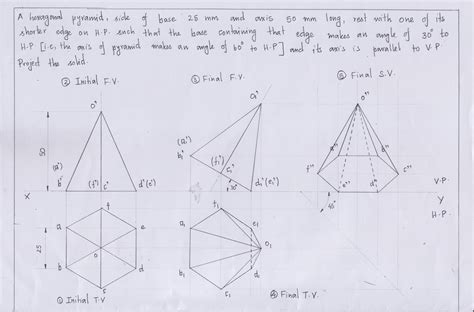 A hexagonal pyramid, side of base 25 mm and axis 50 mm long, rest with one of its
shorter edge on H.P. such that the base containing that edge makes an angle of 30° to
H.P [i.e. the axis of pyramid makes an angle of 60° to H.P] and its axis is parallel to V.P.
Project the solid.
② Initial F.V.
③ Final F.V.
⑤ Final S.V.
o'
o₁'
o"
(a')
b'
(f')
c'
d'(e')
50
(a₁')
b₁'
(f₁')
c₁'
30°
d₁'(e₁')
a"
b"
f"
c"
e"
d"
45°
X
V.P.
Y
H.P.
f
a
e
o
b
d
c
25
① Initial T.V
f₁
a₁
e₁
o₁
b₁
d₁
c₁
④ Final T.V.